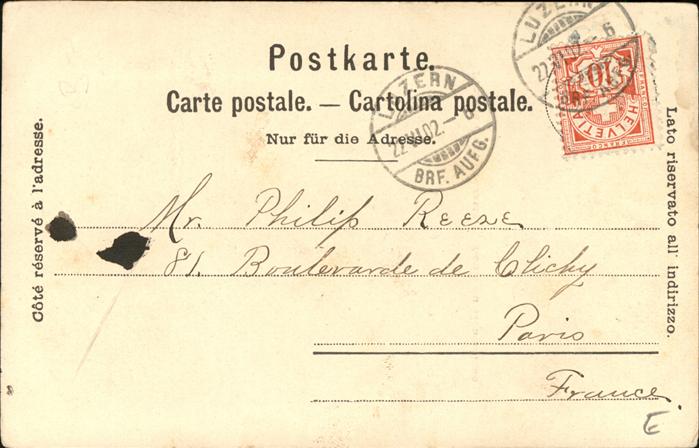 Postkarte.
Carte postale. — Cartolina postale.
Nur für die Adresse.
Côté réservé à l'adresse.
Lato riservato all' indirizzo.
LUZERN
22.VI.02.-6
BRF. AUFG.
LUZERN
22.VI.02.-6
BRF. AUFG.
10
HELVETIA
FRANCO
Mr. Philip Reeze
81. Boulevarde de Clichy
Paris
France.
E